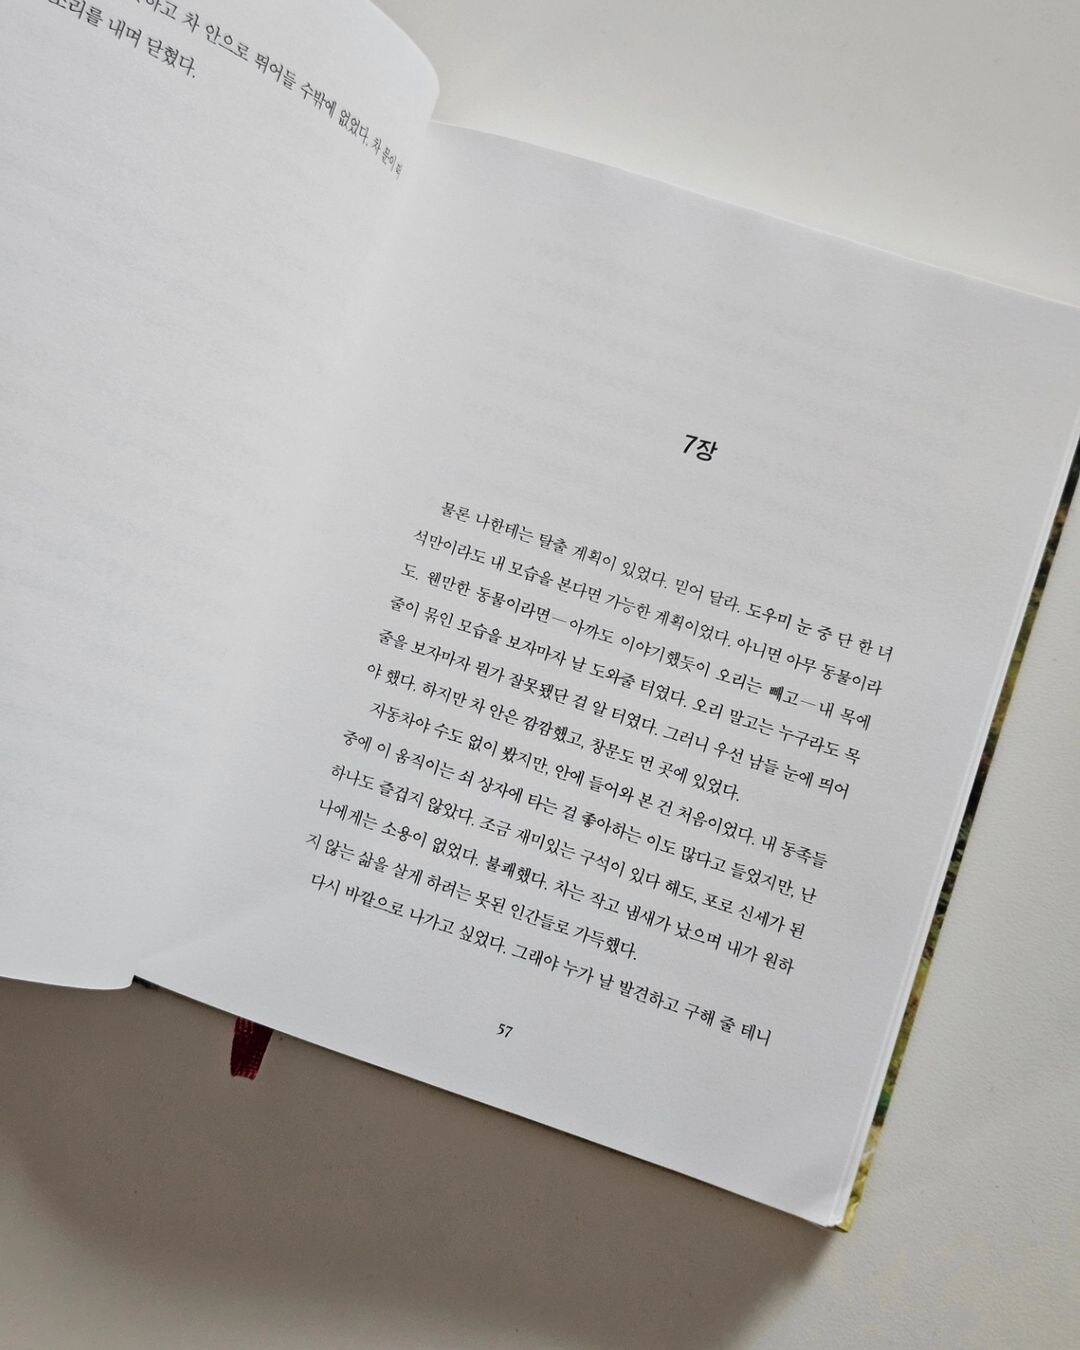 차 안으로 뛰어들 수밖에 없었다. 차 문이
소리를 내며 닫혔다.
7장
물론 나한테는 탈출 계획이 있었다. 믿어 달라. 도우미 눈 중 단 한 녀
석만이라도 내 모습을 본다면 가능한 계획이었다. 아니면 아무 동물이라
도. 웬만한 동물이라면—아까도 이야기했듯이 오리는 빼고—내 목에
줄이 묶인 모습을 보자마자 날 도와줄 터였다. 오리 말고는 누구라도 목
줄을 보자마자 뭔가 잘못됐단 걸 알 터였다. 그러니 우선 남들 눈에 띄어
야 했다. 하지만 차 안은 깜깜했고, 창문도 먼 곳에 있었다.
자동차야 수도 없이 봤지만, 안에 들어와 본 건 처음이었다. 내 동족들
중에 이 움직이는 쇠 상자에 타는 걸 좋아하는 이도 많다고 들었지만, 난
하나도 즐겁지 않았다. 조금 재미있는 구석이 있다 해도, 포로 신세가 된
나에게는 소용이 없었다. 불쾌했다. 차는 작고 냄새가 났으며 내가 원하
지 않는 삶을 살게 하려는 못된 인간들로 가득했다.
다시 바깥으로 나가고 싶었다. 그래야 누가 날 발견하고 구해 줄 테니
57